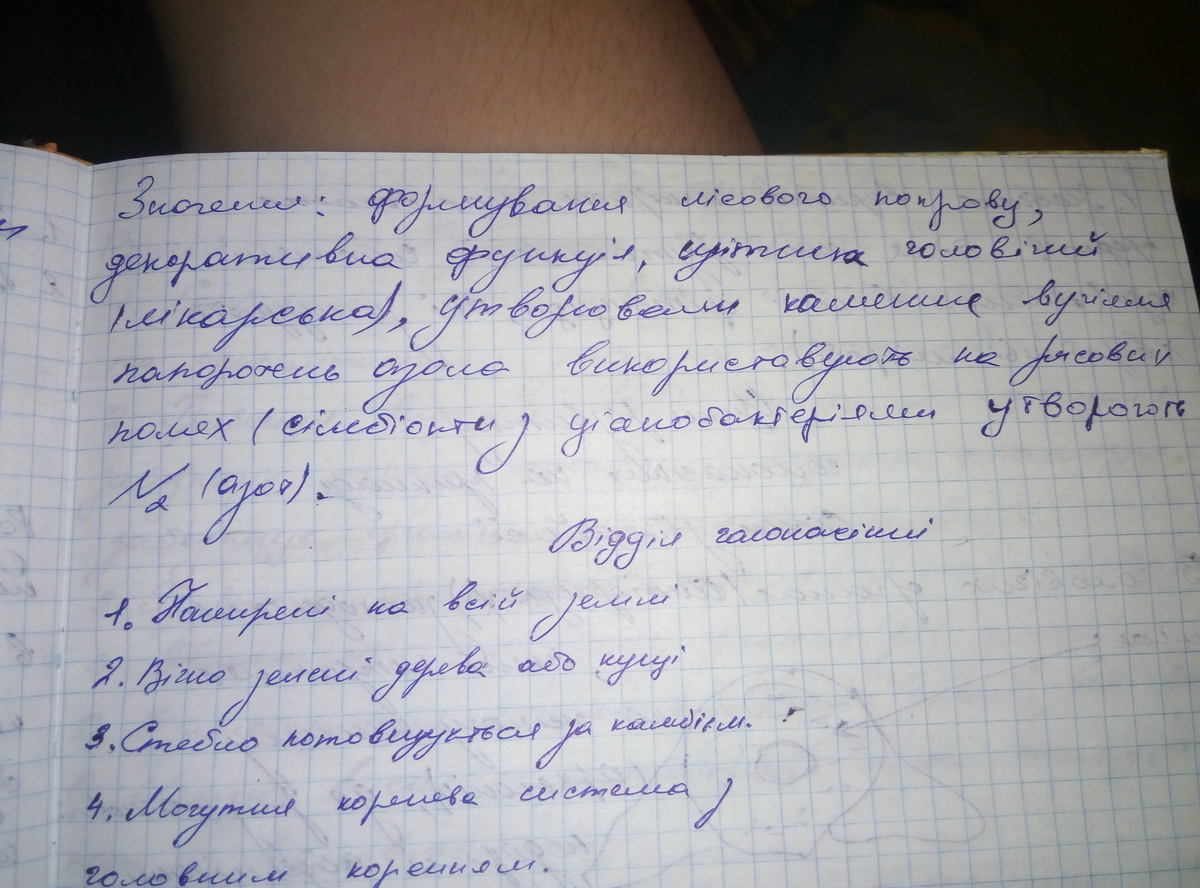 Значення: формування лісового покрову,
декоративна функція, щитник чоловічий
(лікарська), утворювали камінне вугілля
папороть азола використовують на рисових
полях (сімбіонти з ціанобактеріями утворюють
N2 (азот).
Відділ голонасінні
1. Поширені на всій землі
2. Вічно зелені дерева або кущі
3. Стебло потовщується за камбієм.
4. Могутня коренева система з
головним коренням.